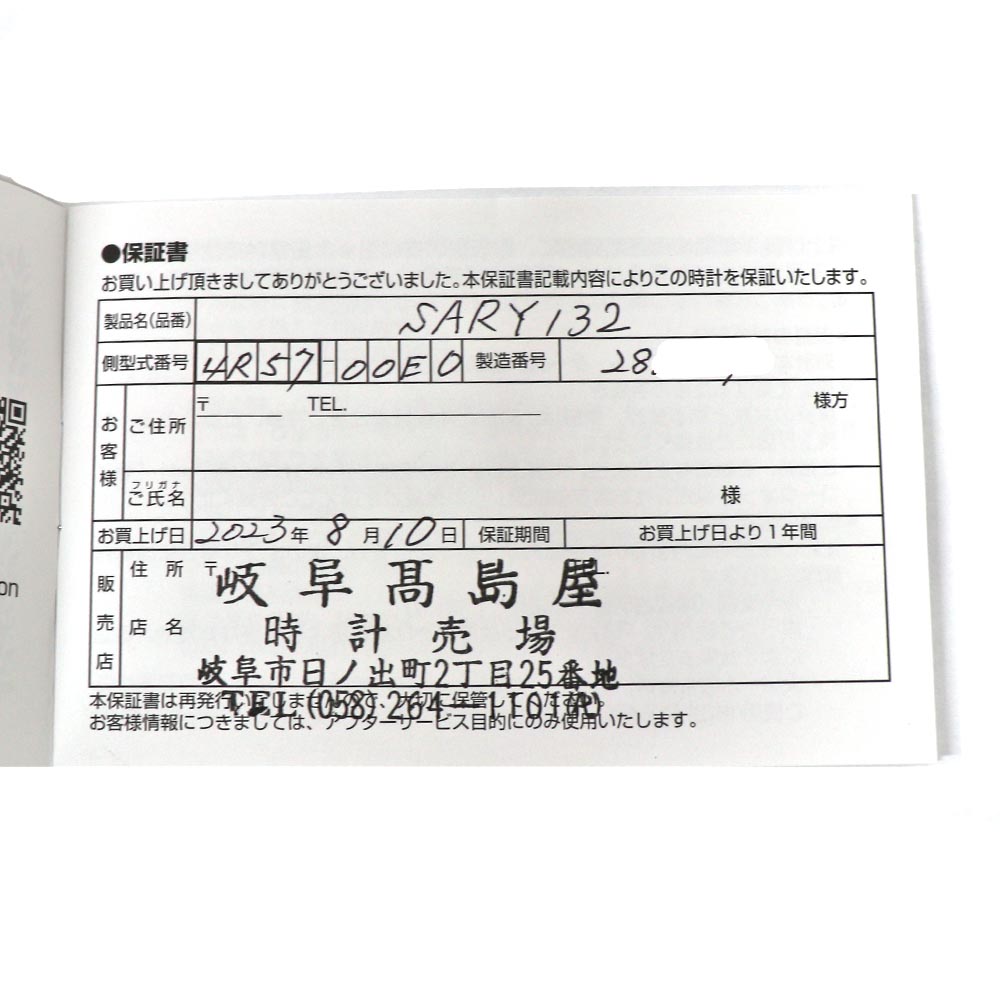 ●保証書
お買い上げ頂きましてありがとうございました。本保証書記載内容によりこの時計を保証いたします。
製品名(品番) SARY132
側型式番号 4R57-00E0 製造番号 28.
お客様 ご住所 〒 TEL. 様方
フリガナ
ご氏名 様
お買上げ日 2023年 8月10日 保証期間 お買上げ日より1年間
販売店 住所 〒
岐阜髙島屋
店名
時計売場
岐阜市日ノ出町2丁目25番地
TEL(058)264-1101(代)
本保証書は再発行いたしませんので、大切に保管してください。
お客様情報につきましては、アフターサービス目的にのみ使用いたします。
on